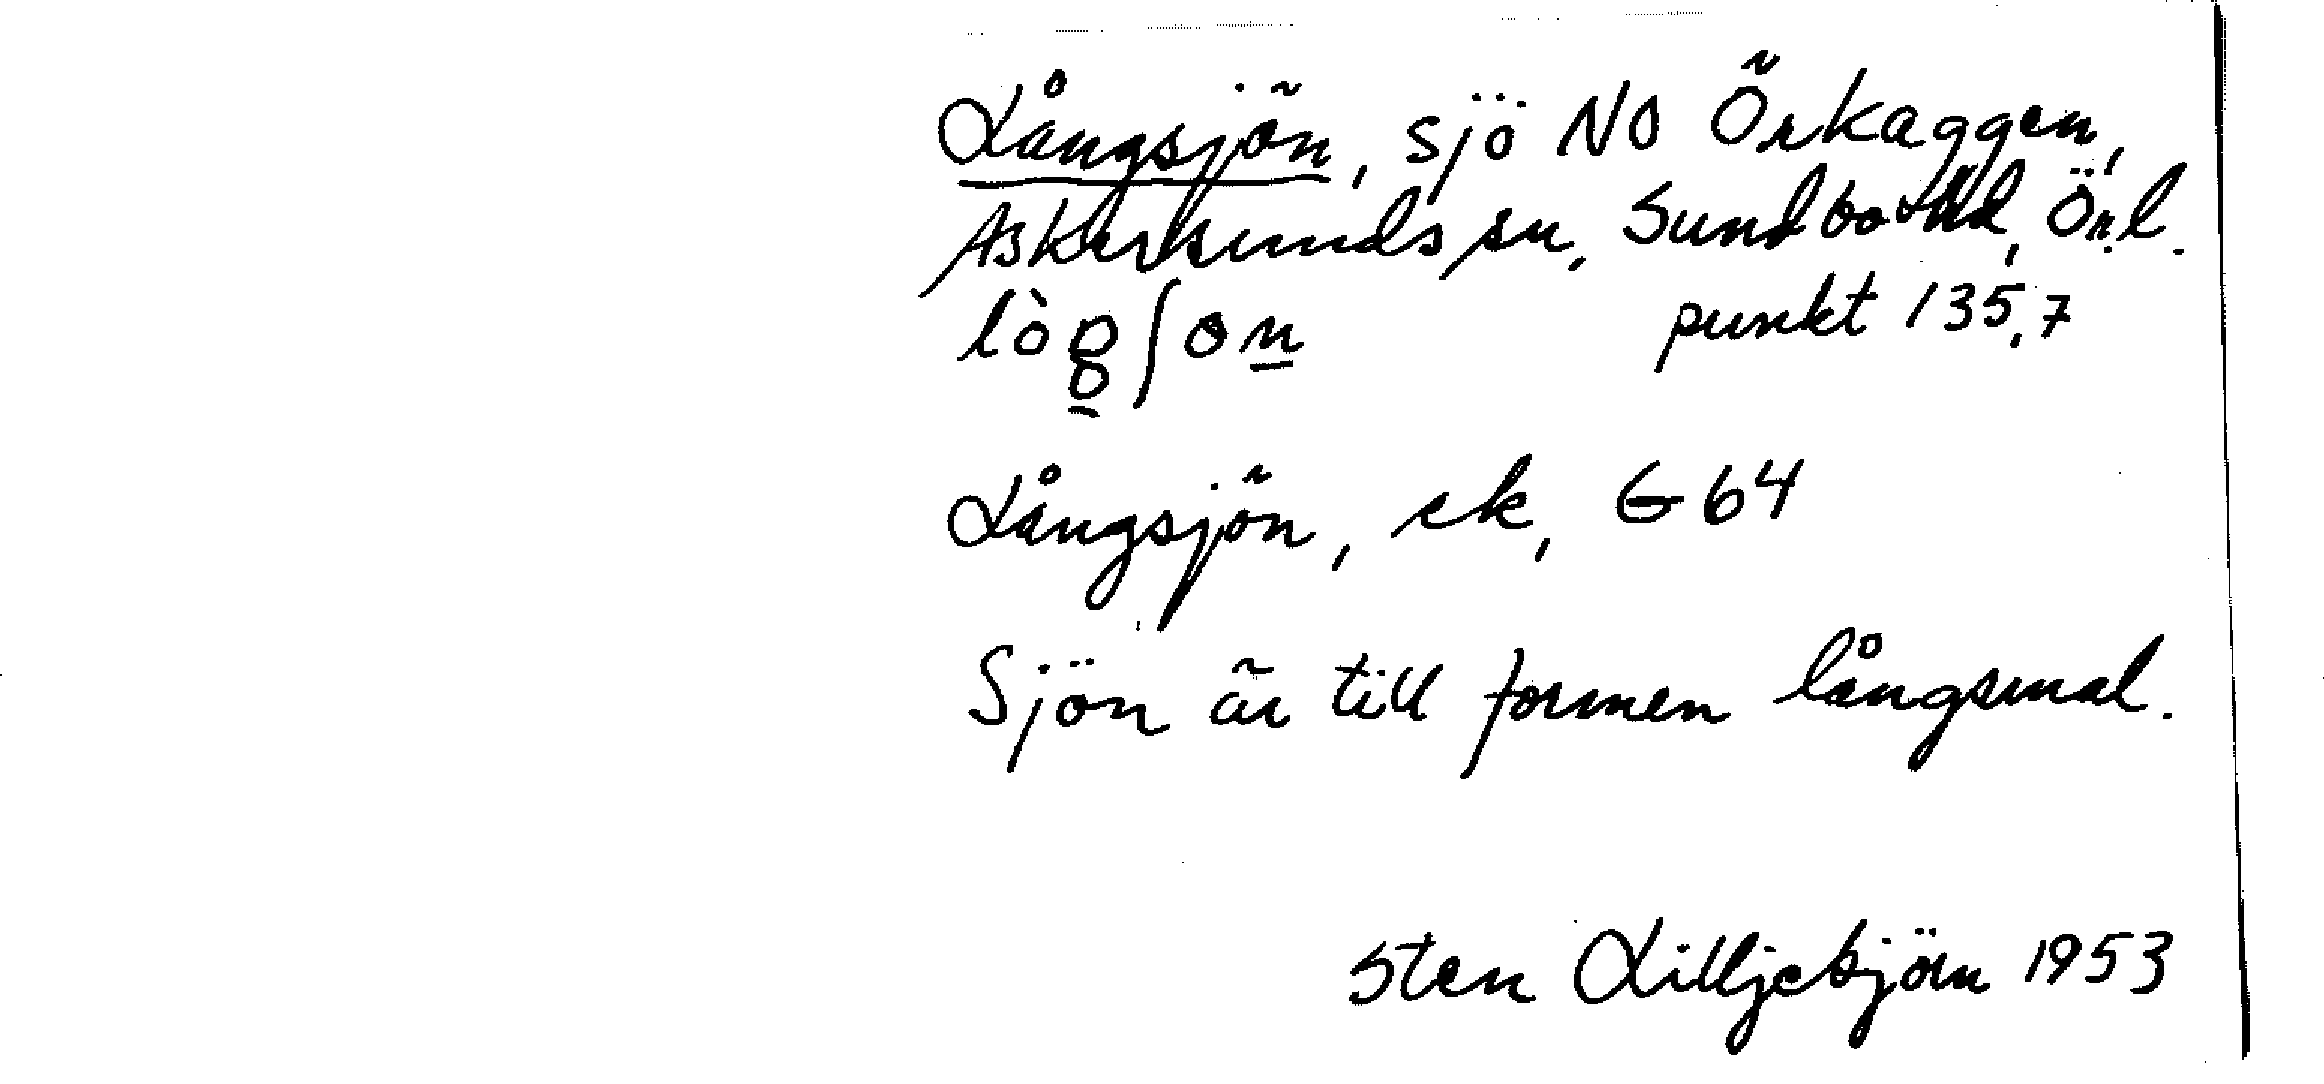 Långsjön, sjö NO Örkaggen,
Askersunds sn, Sundbo hd, Ör.l.
lògʃon punkt 135,7
Långsjön, ek, G 64
Sjön är till formen långsmal.
Sten Lilljebjörn 1953